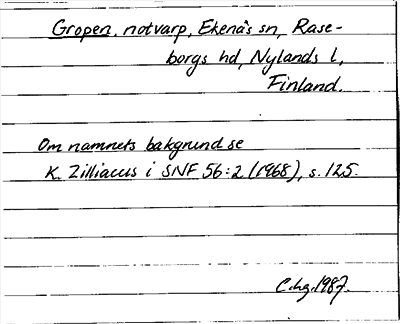 Gropen, notvarp, Ekenäs sn, Rase-
borgs hd, Nylands l,
Finland.
Om namnets bakgrund se
K. Zilliacus i SNF 56:2 (1968), s. 125.
C.hg.1987.